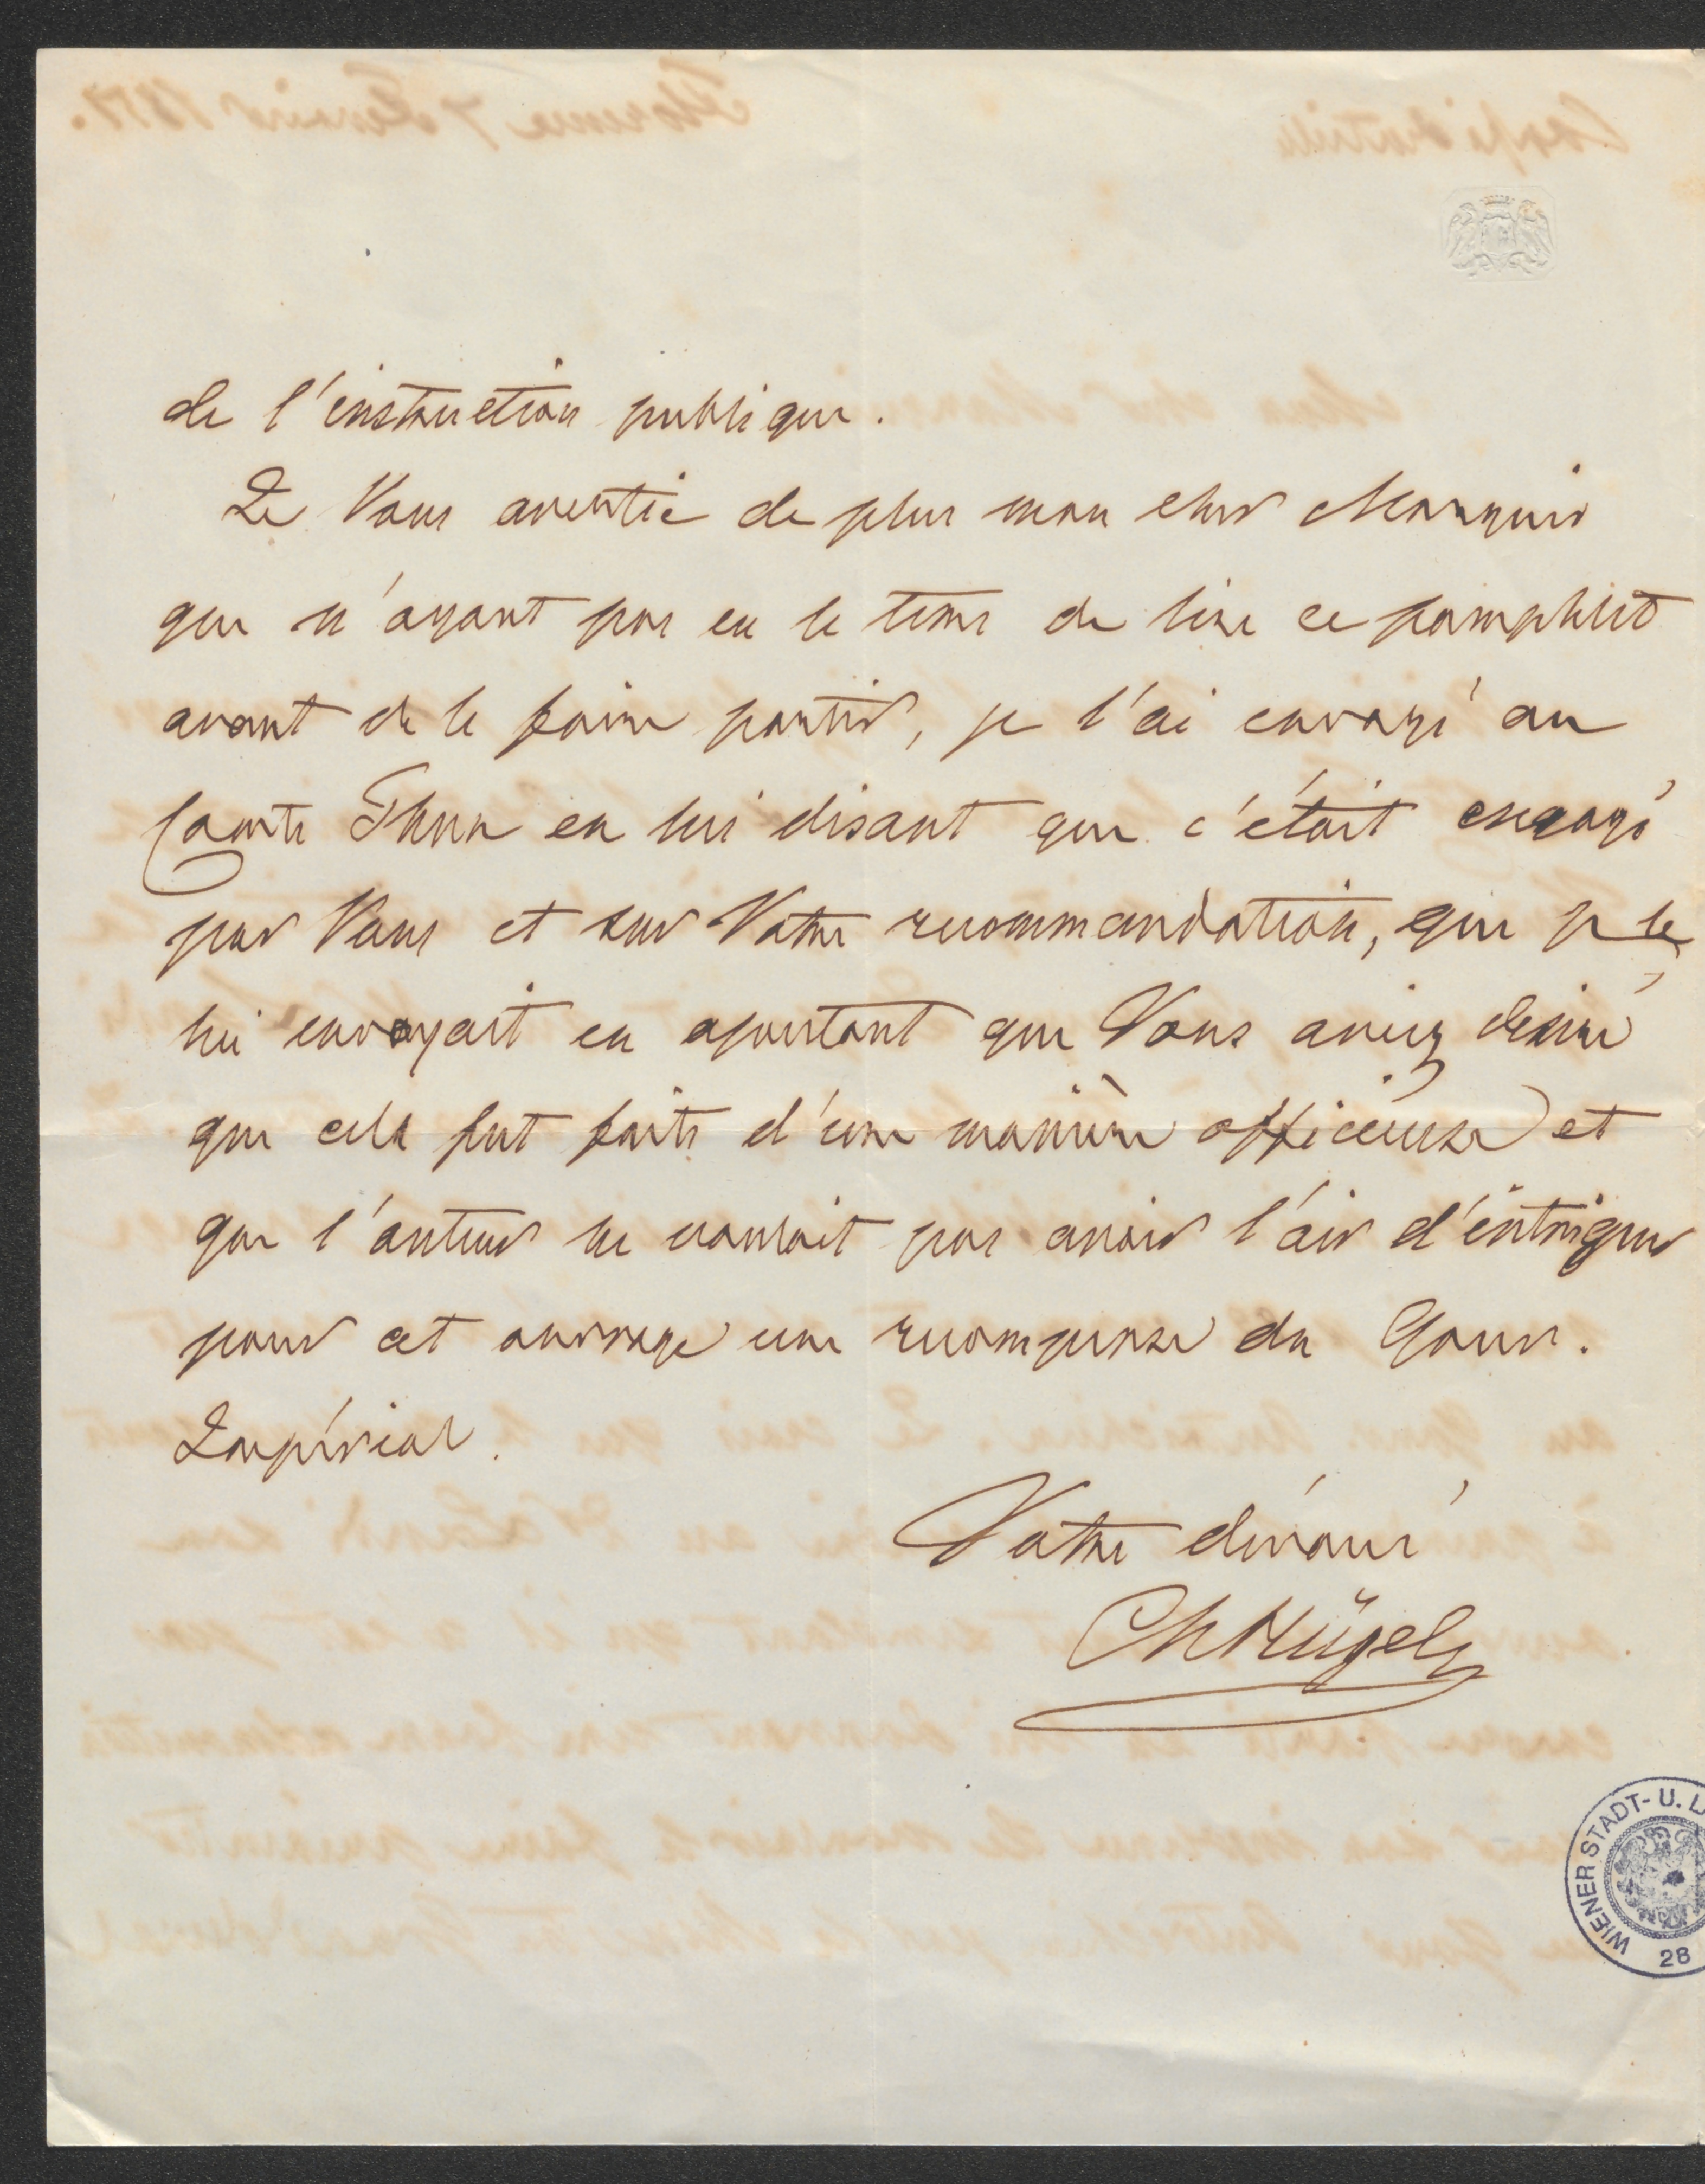 de l'instruction publique.
Je Vous avertie de plus mon cher Marquis
que n'ayant pas eu le tems de lire ce pamphlet
avant de le faire partir, je l'ai envoyé au
Comte Thun en lui disant que c'était engagé
par Vous et sur Votre recommandation, que je le
lui envoyait en ajoutant que Vous aviez desiré
que cela fut faite d'une manière officieuse et
que l'auteur ne voulait pas avoir l'air d'intriguer
pour cet ouvrage une recompense du Gouv.
Impérial.
Votre dévoué
Ch Hügel
WIENER STADT- U. L
28